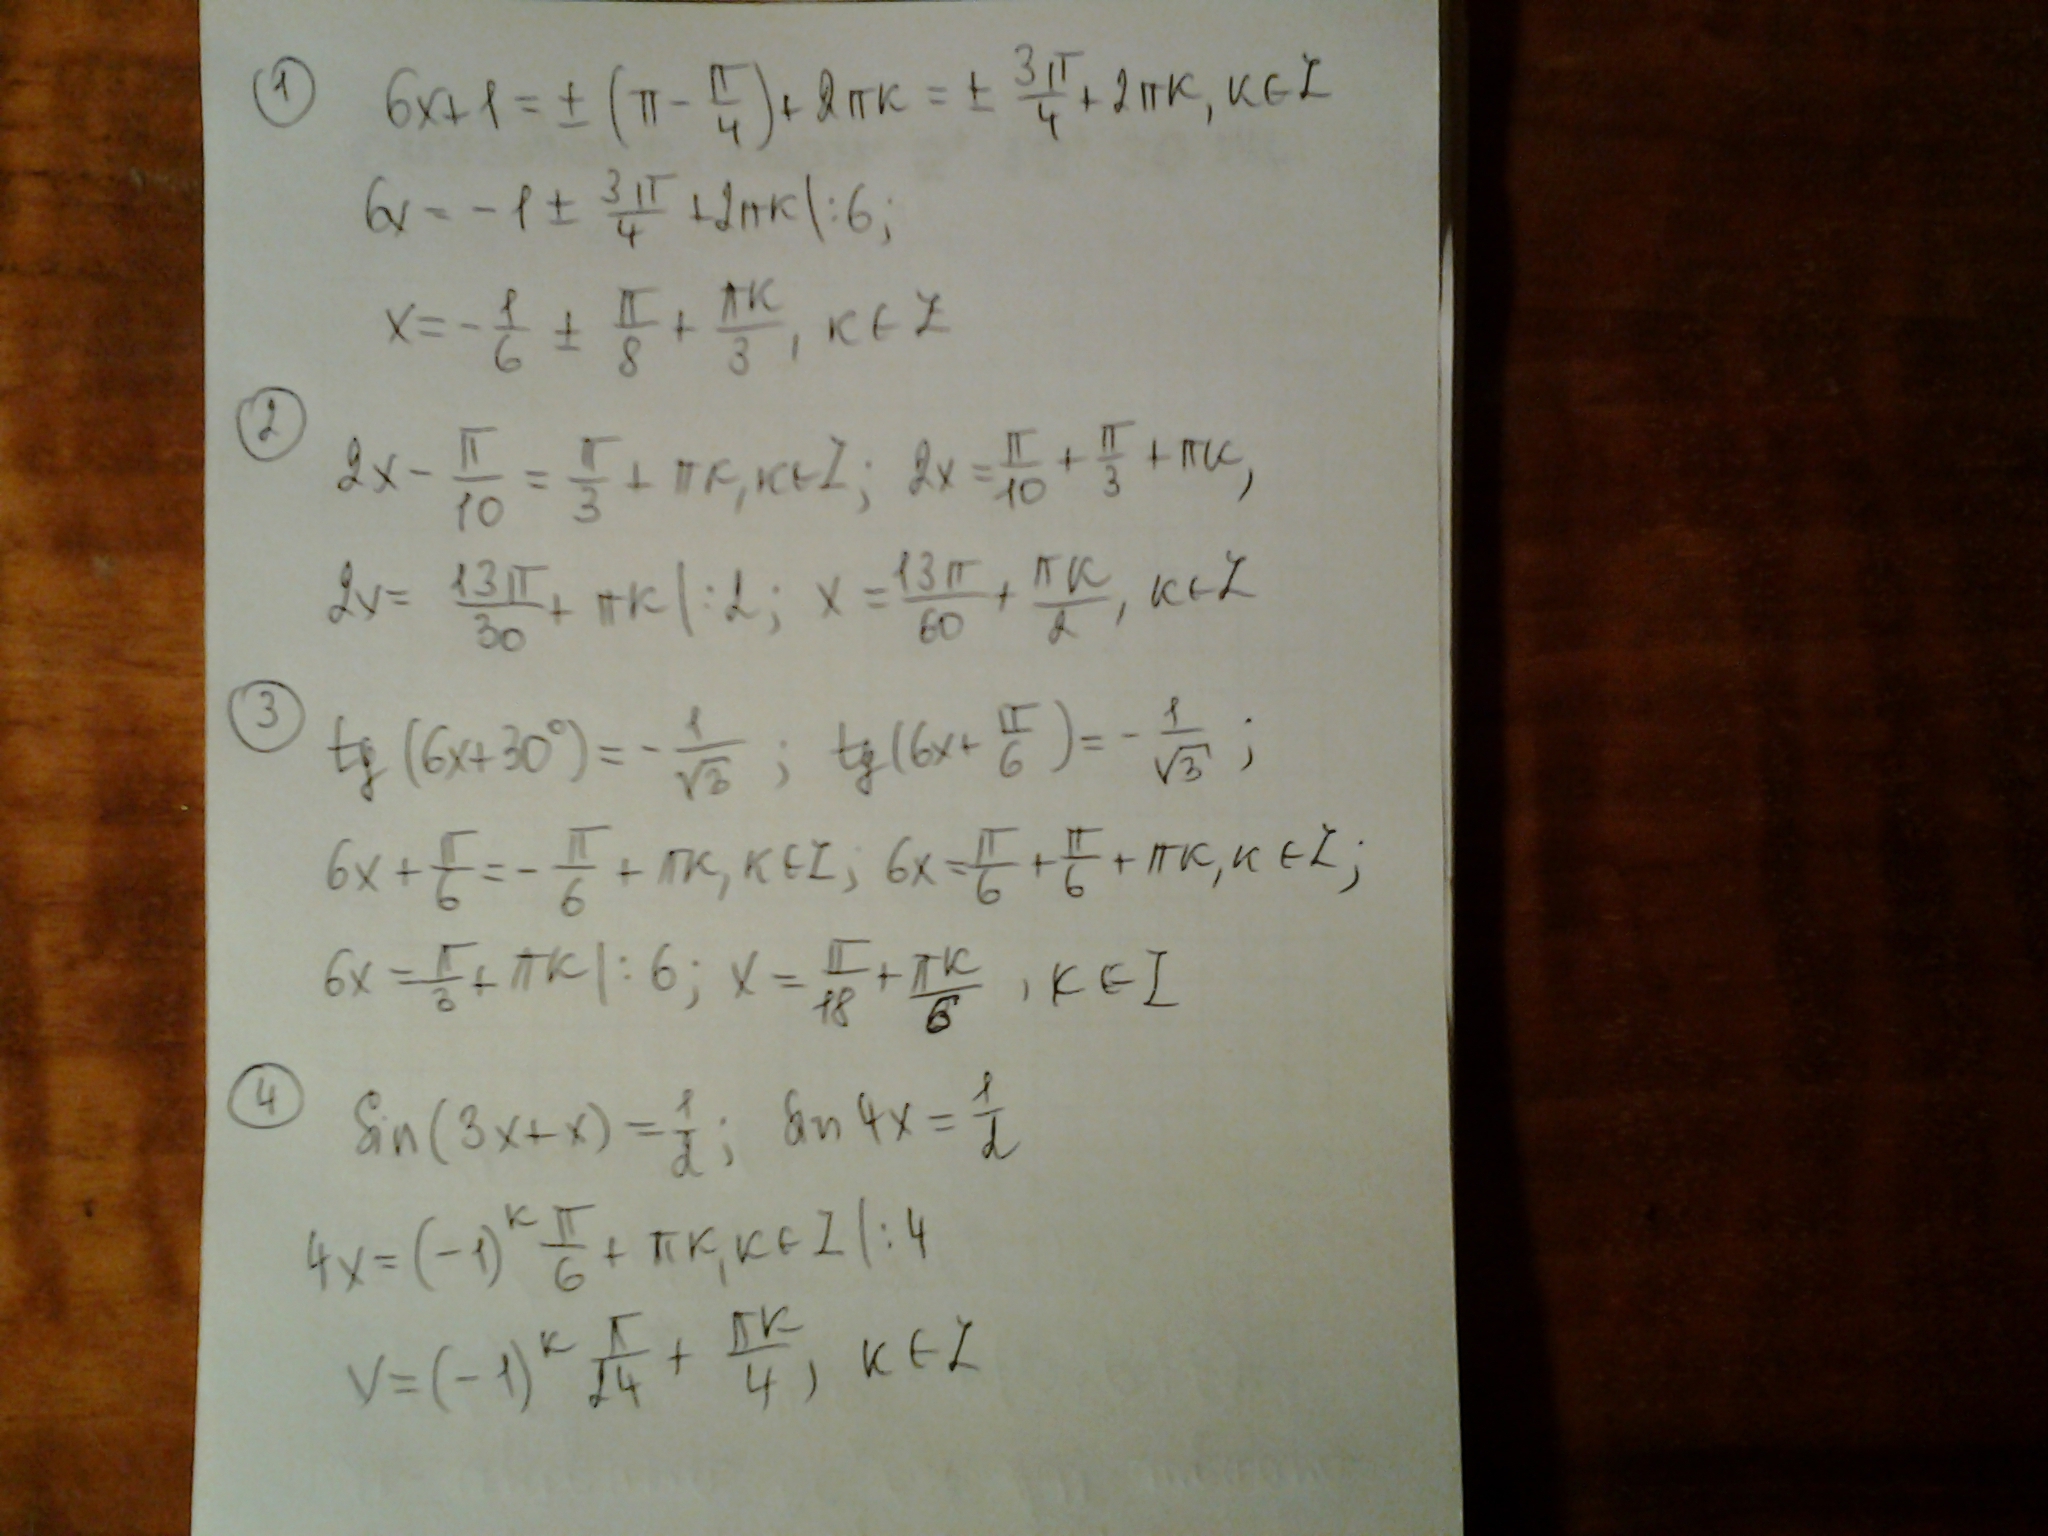 ① 6x+1=±(π-π/4)+2πк=±3π/4+2πк, к∈Z
6x=-1±3π/4+2πк|:6;
x=-1/6±π/8+πк/3, к∈Z
②
2x-π/10=π/3+πк, к∈Z; 2x=π/10+π/3+πк,
2x=13π/30+πк|:2; x=13π/60+πк/2, к∈Z
③
tg(6x+30°)=-1/√3; tg(6x+π/6)=-1/√3;
6x+π/6=-π/6+πк, к∈Z; 6x=π/6+π/6+πк, к∈Z;
6x=π/3+πк|:6; x=π/18+πк/6, к∈Z
④
Sin(3x+x)=1/2; Sin4x=1/2
4x=(-1)^к π/6+πк, к∈Z|:4
x=(-1)^к π/24+πк/4, к∈Z